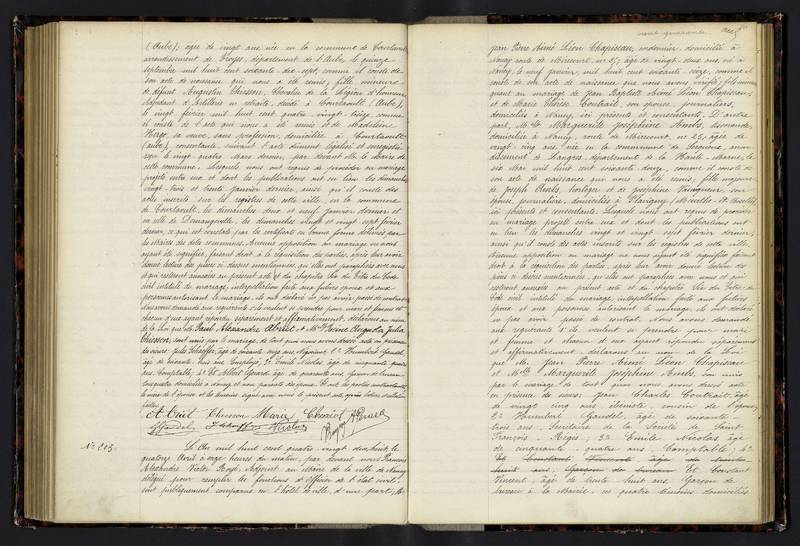 (Aube), âgée de vingt ans née en la commune de Courtaoult
arrondissement de Troyes, département de l'Aube, le quinze
septembre mil huit cent soixante dix-sept, comme il conste de
son acte de naissance qui nous a été remis; fille mineure
de défunt Augustin Chusson, Chevalier de la Légion d'honneur
Adjudant d'Artillerie en retraite, décédé à Courtaoult (Aube),
le vingt février mil huit cent quatre vingt-treize, comme
il conste de l'acte qui nous a été remis et de Madeleine
sa veuve, sans profession, domiciliée à Courtaoult
(Aube), consentante suivant l'acte dûment légalisé et enregistré
reçu le vingt quatre Mars dernier, par devant M. le Maire de
cette commune. Lesquels nous ont requis de procéder au mariage
projeté entre eux et dont les publications ont eu lieu les dimanches
vingt-trois et trente janvier dernier, ainsi qu'il conste des
actes inscrits sur les registres de cette ville, en la commune
de Courtaoult, les dimanches deux et neuf janvier dernier et
en celle de les dimanches vingt et vingt-sept février
dernier, ce qui est constaté par les certificats en bonne forme délivrés par
les Maires des dites communes. Aucune opposition au mariage ne nous
ayant été signifiée, faisant droit à la réquisition des parties, après leur avoir
donné lecture des pièces ci-dessus mentionnées, qu'elles ont paraphées avec nous
et qui resteront annexées au présent acte et du chapitre six du Titre du Code
civil intitulé du mariage, interpellation faite aux futurs époux et aux
personnes autorisant le mariage, ils ont déclaré ne pas avoir passé de contrat
nous avons demandé aux requérants s'ils veulent se prendre pour mari et femme et
chacun d'eux ayant répondu séparément et affirmativement, déclarons au nom
de la Loi que Mr Paul Alexandre Abriet et Mlle Rosine Augusta Julia
Chusson, sont unis par le mariage, de tout quoi nous avons dressé acte en présence
de mrs Jules Schaeffer, âgé de soixante onze ans, Négociant, 2º Humbert Gandel,
âgé de soixante trois ans Employé, 3º Emile Nicolas, âgé de cinquante quatre
ans, Comptable; 4º Et Albert Gérard, âgé de quarante ans, Garçon de bureau
tous quatre domiciliés à Nancy et non parents des époux. Et ont, les parties contractantes
la mère de l'époux et les témoins signé avec nous le présent acte après lecture et
faite.
A. Briet Chusson Maria A Gérard
Gandel J. Schaeffer Nicolas Boyé
Nº 213.
Le An mil huit cent quatre vingt dix huit, le
quatorze Avril à onze heures du matin, par devant nous François
Alexandre Victor Boyé, Adjoint au Maire de la ville de Nancy
délégué pour remplir les fonctions d'officier de l'état-civil
sont publiquement comparus en l'hôtel de ville, d'une part, Mr
cent quarante
Jean Pierre Aimé Léon Chapiseau, cordonnier, domicilié à
Nancy, route de Mirecourt, nº 25; âgé de vingt-deux ans, né à
Nancy, le neuf janvier, mil huit cent soixante-seize, comme il
conste de son acte de naissance que nous avons vérifié; fils mineur
quant au mariage de Jean Baptiste Aimé Léon Chapiseau,
et de Marie Thérèse Contrait, son épouse, journaliers,
domiciliés à Nancy, ici présents et consentants. D'autre
part, Mlle Marguerite Joséphine Aubs,
domiciliée à Nancy, route de Mirecourt, nº 25; âgée de
vingt-cinq ans, née en la commune de
arrondissement de Langres, département de la Haute-Marne, le
six Mai mil huit cent soixante-douze, comme il conste de
son acte de naissance qui nous a été remis; fille majeure
de Joseph Aubs, horloger et de Joséphine son
épouse, journalière, domiciliés à Flavigny (Meurthe-et-Moselle),
ici présents et consentants. Lesquels nous ont requis de procéder
au mariage projeté entre eux et dont les publications ont
eu lieu les dimanches vingt et vingt-sept février dernier,
ainsi qu'il conste des actes inscrits sur les registres de cette ville.
Aucune opposition au mariage ne nous ayant été signifiée faisant
droit à la réquisition des parties, après leur avoir donné lecture des
pièces ci-dessus mentionnées, qu'elles ont paraphées avec nous et qui
resteront annexées au présent acte et du chapitre six du Titre du
Code civil intitulé du mariage, interpellation faite aux futurs
époux et aux personnes autorisant le mariage, ils ont déclaré
ne pas avoir passé de contrat. Nous avons demandé
aux requérants s'ils veulent se prendre pour mari
et femme et chacun d'eux ayant répondu séparément
et affirmativement déclarons au nom de la Loi
que Mr Jean Pierre Aimé Léon Chapiseau
et Mlle Marguerite Joséphine Aubs, sont unis
par le mariage, de tout quoi nous avons dressé acte
en présence de mrs: Jean Charles Contrait, âgé
de vingt cinq ans, ébéniste, cousin de l'époux,
2º Humbert Gandel, âgé de soixante-
trois ans, Secrétaire de la Société de Saint-
François-Régis; 3º Emile Nicolas, âgé
de cinquante-quatre ans, Comptable; 4º
Et Constant Vincent, âgé de trente
huit ans, Garçon de bureau Et Constant
Vincent, âgé de trente huit ans, Garçon de
bureau à la Mairie, ces quatre témoins domiciliés